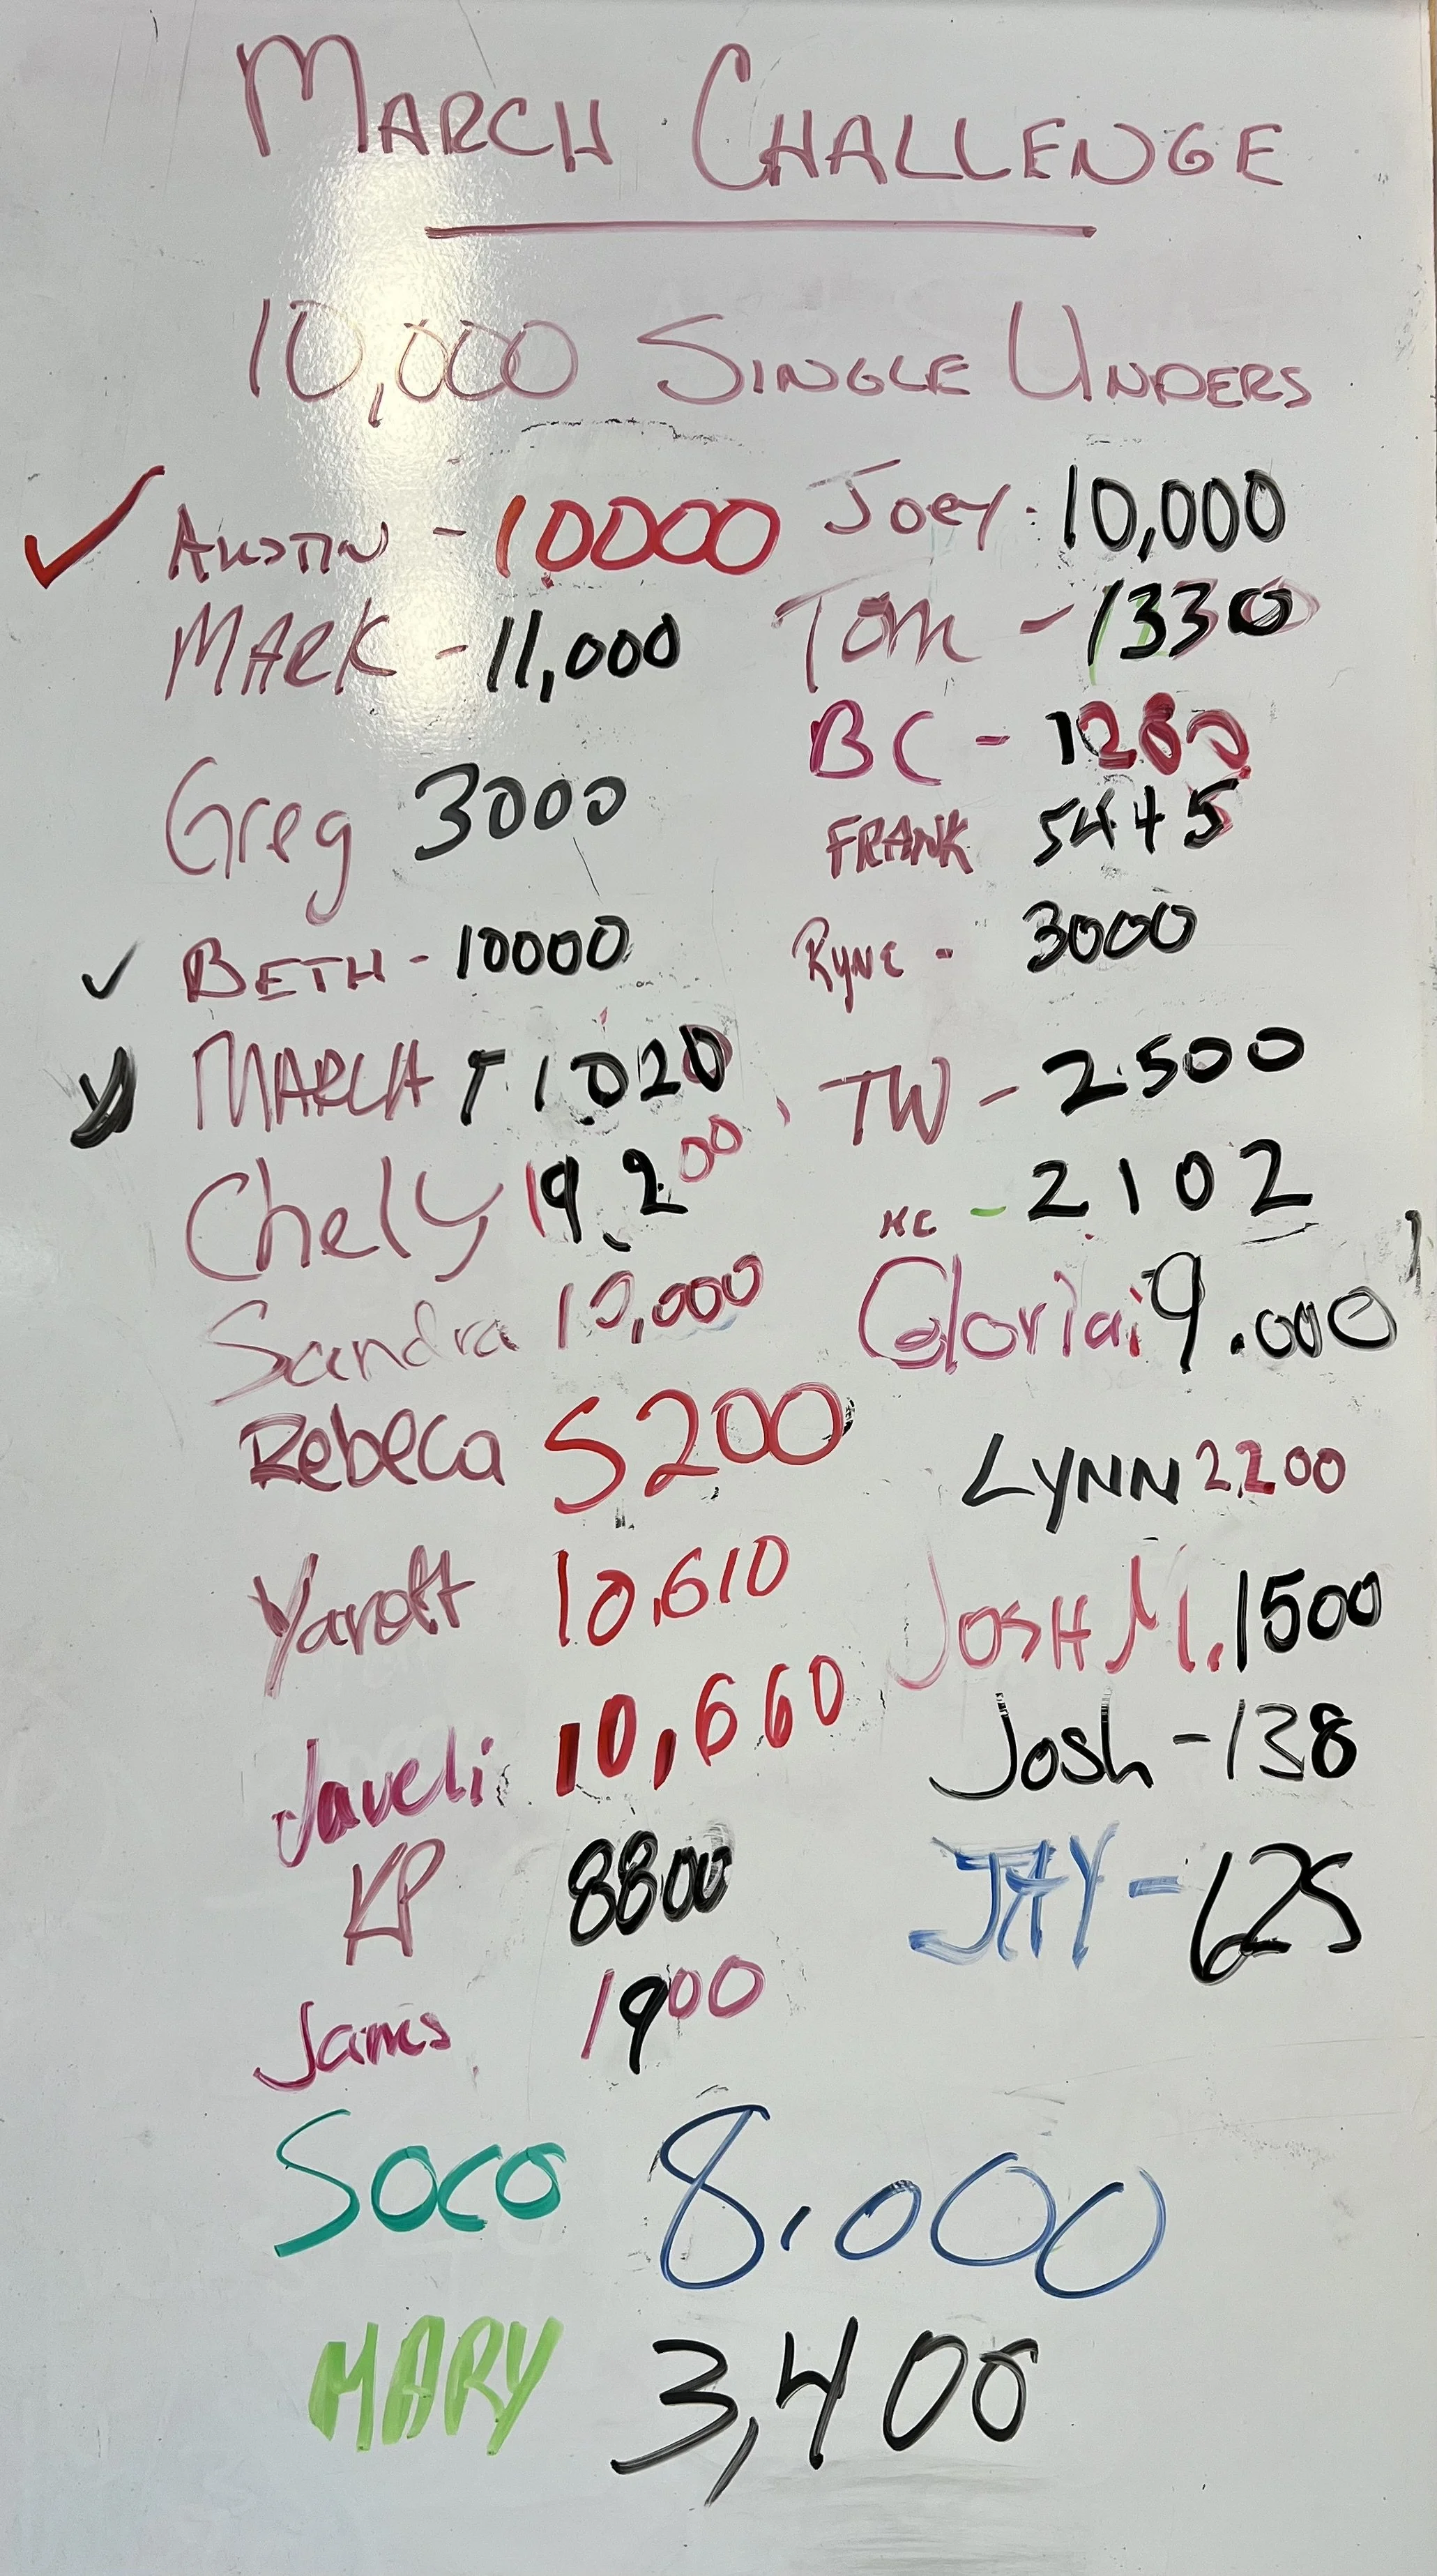 MARCH CHALLENGE
10,000 SINGLE UNDERS
AUSTIN - 10000
MARK - 11,000
Greg 3000
BETH - 10000
MARCH 11020
Chely 19,200
Sandra 10,000
Rebeca 5200
Yarott 10,610
Javeli 10,660
KP 8800
James 1900
Soco 8,000
MARY 3,400
Joey 10,000
Tom - 1330
BC - 1280
FRANK 5445
Ryne - 3000
TW - 2500
- 2102
Gloria 9.000
LYNN 2200
JOSH M. 1500
Josh - 138
JAY - 625